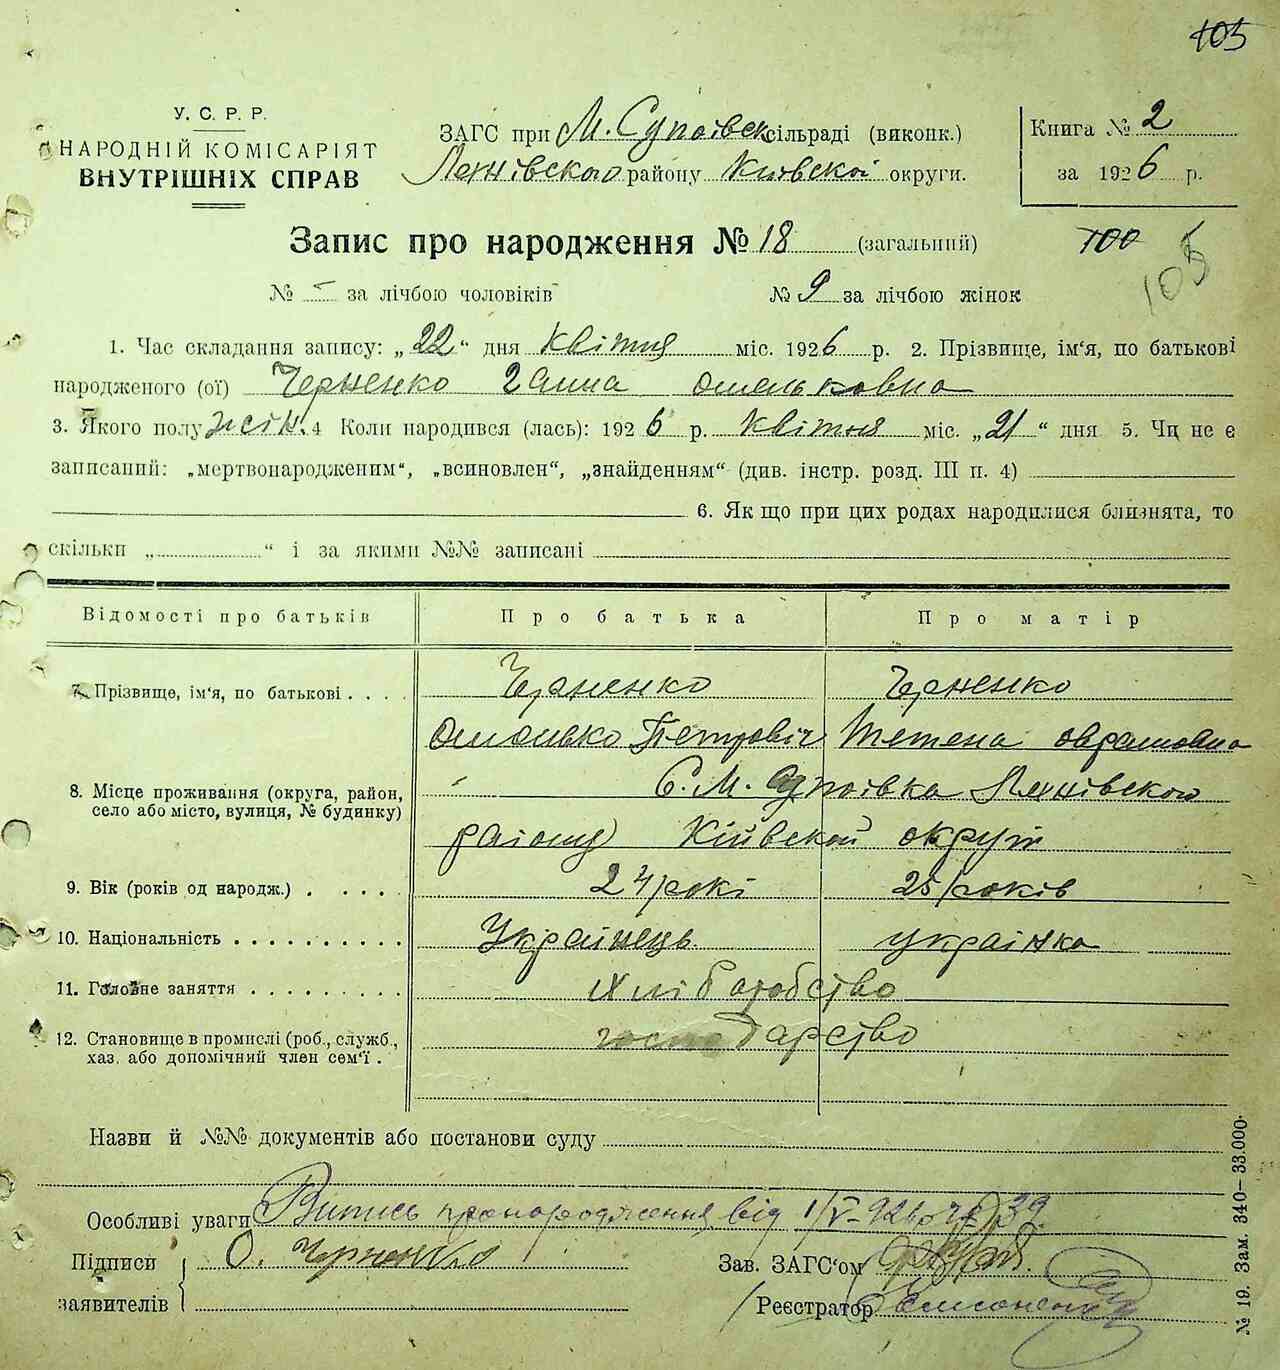 105
У. С. Р. Р.
НАРОДНІЙ КОМІСАРІЯТ
ВНУТРІШНІХ СПРАВ
ЗАГС при М. Супоївск сільраді (виконк.)
Лехнівского району Київской округи.
Книга № 2
за 1926 р.
Запис про народження № 18 (загальний)
100
105
№ - за лічбою чоловіків
№ 9 за лічбою жінок
1. Час складання запису: „22“ дня квітня міс. 1926 р. 2. Прізвище, ім'я, по батькові
народженого (ої) Черненко Ганна Омельковна
3. Якого полу жін. 4 Коли народився (лась): 1926 р. квітня міс. „21“ дня 5. Чи не є
записаний: „мертвонародженим“, „всиновлен“, „знайденням“ (див. інстр. розд. III п. 4)
6. Як що при цих родах народилися близнята, то
скільки „ “ і за якими №№ записані
Відомості про батьків
Про батька
Про матір
7. Прізвище, ім'я, по батькові . . . .
Черненко
Черненко
Омелько Петровіч
Тетена Оврамовна
8. Місце проживання (округа, район,
село або місто, вулиця, № будинку)
С. М. Супоівка Лехнівского
раіону Кіівской округи
9. Вік (років од народж.) . . . . .
24 рокі
25 років
10. Національність . . . . . . . . . .
Українець
українка
11. Головне заняття . . . . . . . . .
Хліборобство
12. Становище в промислі (роб., служб.,
хаз. або допомічний член сем'ї .
господарство
Назви й №№ документів або постанови суду
Особливі уваги Випись про народження від 1/V-926 р № 39
Підписи
заявителів
О. Черненко
Зав. ЗАГС'ом
Реєстратор
№ 19. Зам. 340—33.000.